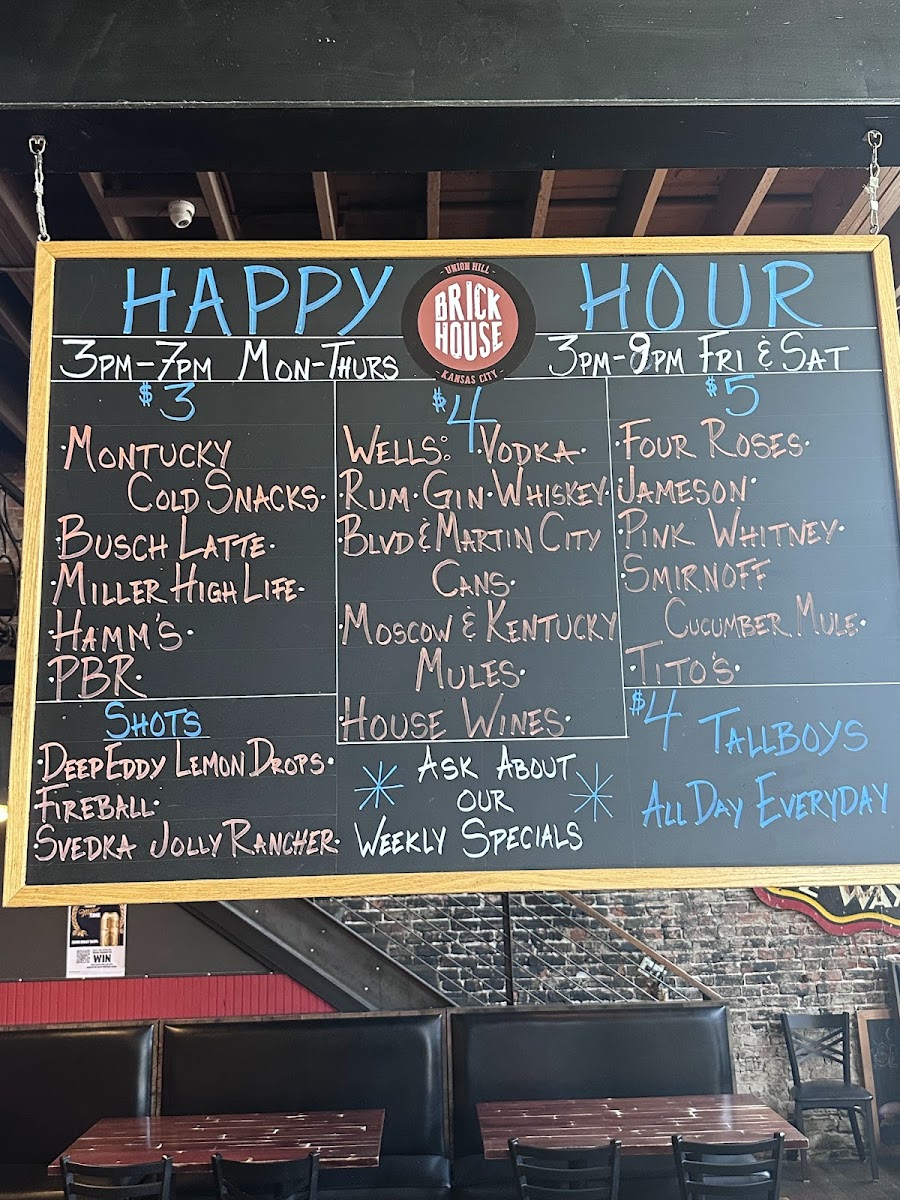 HAPPY HOUR
- UNION HILL -
BRICK
HOUSE
- KANSAS CITY -
3PM-7PM MON-THURS
3PM-9PM FRI & SAT
$3
·MONTUCKY
COLD SNACKS·
·BUSCH LATTE·
·MILLER HIGH LIFE·
·HAMM'S·
·PBR·
SHOTS
·DEEP EDDY LEMON DROPS·
FIREBALL·
·SVEDKA JOLLY RANCHER·
$4
WELLS: ·VODKA·
·RUM·GIN·WHISKEY·
·BLVD & MARTIN CITY
CANS·
·MOSCOW & KENTUCKY
MULES·
·HOUSE WINES·
ASK ABOUT
OUR
WEEKLY SPECIALS
$5
·FOUR ROSES·
·JAMESON·
·PINK WHITNEY·
·SMIRNOFF
CUCUMBER MULE·
·TITO'S·
$4 TALLBOYS
ALL DAY EVERYDAY
WIN